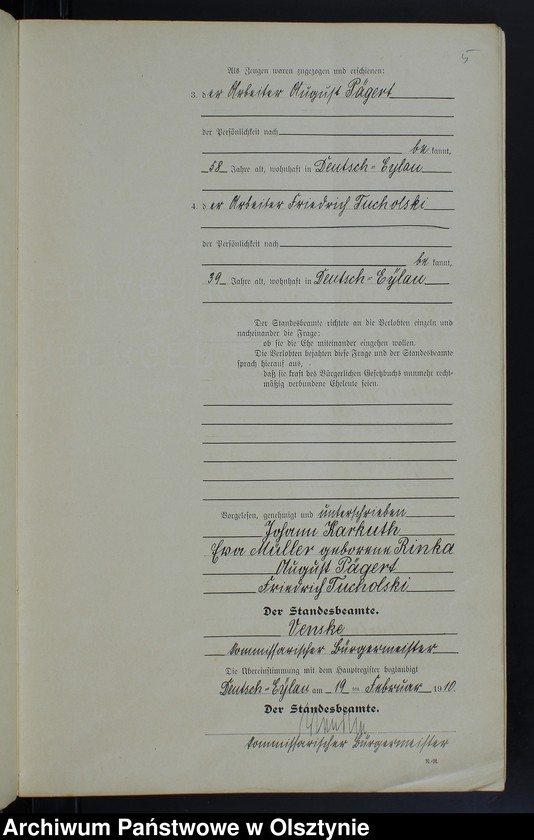 5
Als Zeugen waren zugezogen und erschienen:
3. der Arbeiter August Pägert
der Persönlichkeit nach
be kannt,
58 Jahre alt, wohnhaft in Deutsch-Eylau
4. der Arbeiter Friedrich Tucholski
der Persönlichkeit nach
be kannt,
39 Jahre alt, wohnhaft in Deutsch-Eylau
Der Standesbeamte richtete an die Verlobten einzeln und
nacheinander die Frage:
ob sie die Ehe miteinander eingehen wollen.
Die Verlobten bejahten diese Frage und der Standesbeamte
sprach hierauf aus,
daß sie kraft des Bürgerlichen Gesetzbuchs nunmehr recht-
mäßig verbundene Eheleute seien.
Vorgelesen, genehmigt und unterschrieben
Johann Karkuth
Eva Müller geborene Rinka
August Pägert
Friedrich Tucholski
Der Standesbeamte.
Venske
kommissarischer Bürgermeister
Die Übereinstimmung mit dem Hauptregister beglaubigt
Deutsch-Eylau am 19 ten Februar 1910.
Der Standesbeamte.
kommissarischer Bürgermeister
Archiwum Państwowe w Olsztynie